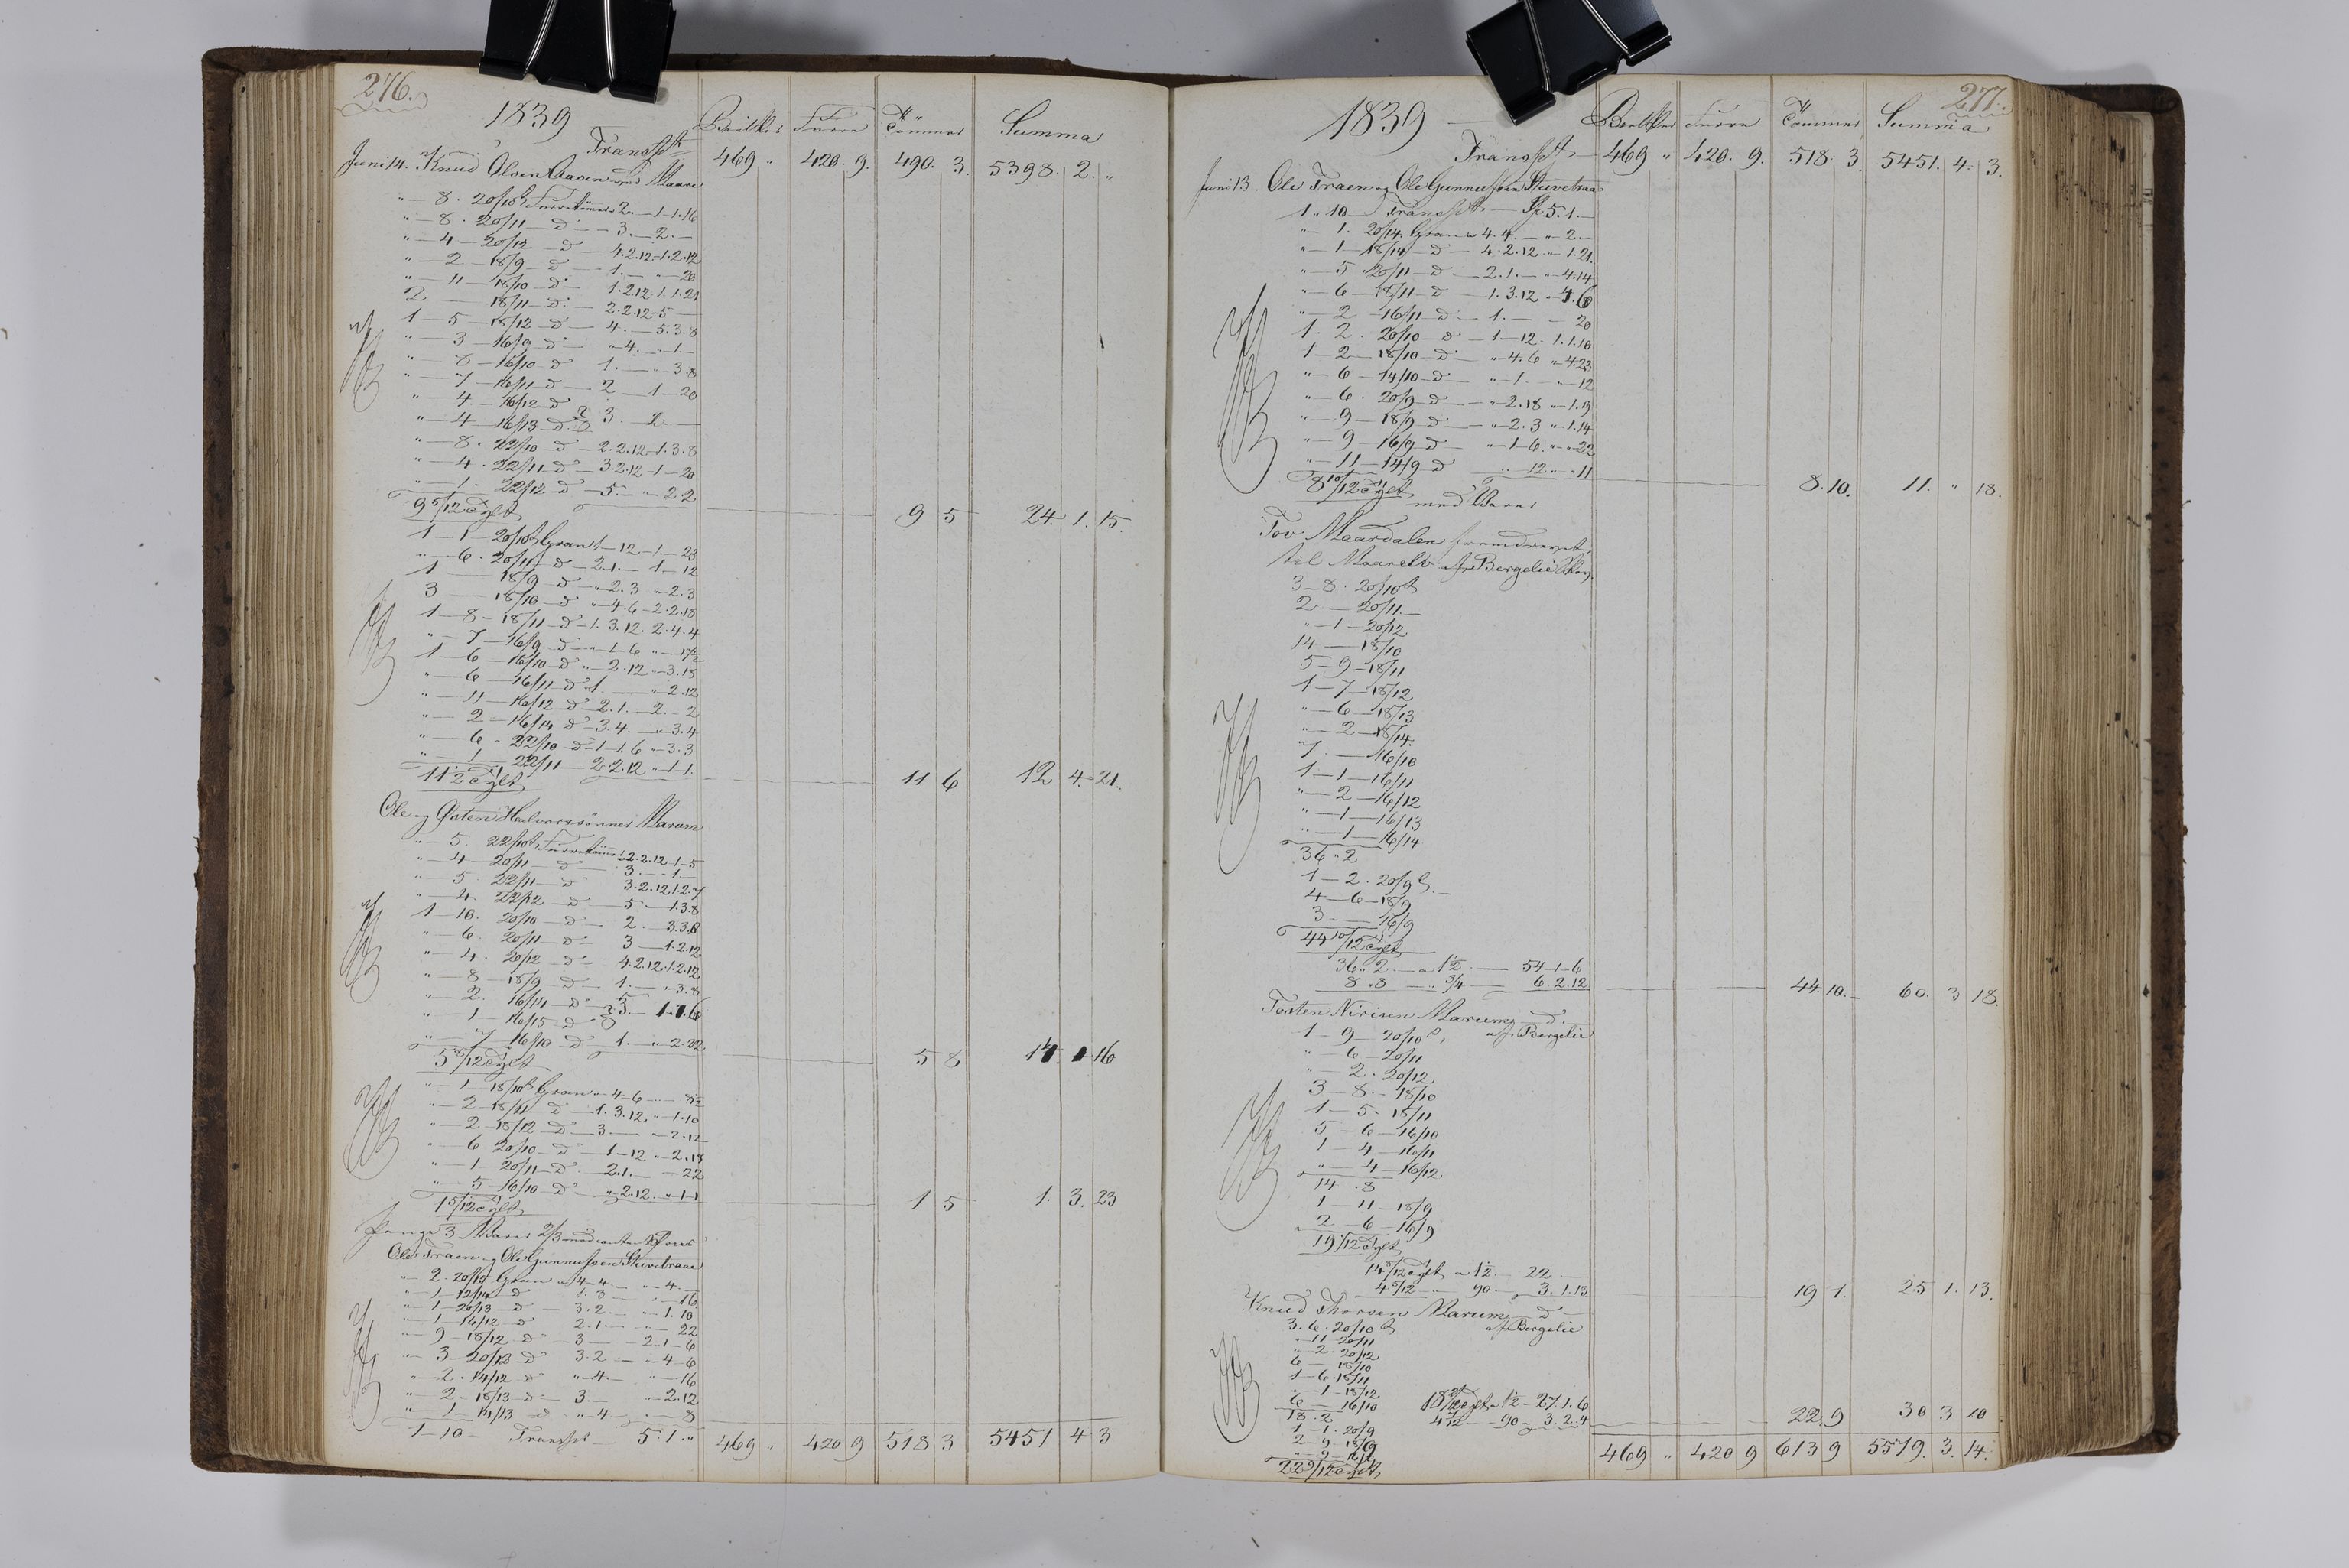 276.
1839 Bielker Furre Tömmer Summa
Transpt 469 " 420. 9. 490. 3. 5398. 2. "
Juni 14. Knud Olsen Aasen med Maaren
" — 8. 20/10 Furretömmer 2. — 1 - 1.16
" — 8. 20/11 — d — 3. — 2. —
" — 4 — 20/12 — d — 4.2.12 - 1.2.12
" — 2 — 18/9 — d — 1. — " — 20
" — 11 — 18/10 — d — 1.2.12. 1.1.21
2 — 18/11 — d — 2.2.12 - 5 —
1 — 5 — 18/12 — d — 4. — 5.3.8
" — 3 — 16/9 — d — " 4. — " 1. -
" — 8 — 16/10 — d 1. — " — 3.8
" — 7 — 16/11 — d — 2 — 1 — 20
" — 4. — 16/12 — d
" — 4 — 16/13 — d — 3. — 2. —
" — 8. 22/10 — d — 2.2.12 - 1.3.8
" — 4. 22/11 — d — 3.2.12 - 1 — 20
" — 1. 22/12 — d — 5. — " — 2.2
9 5/12 Tylt 9 5 24. 1. 15.
1 — 1 — 20/10 Gran 1 — 12 - 1. — 23
" — 6. 20/11 — d — 2.1. — 1 — 12
1 — 18/9 — d — " 2.3 " 2.3
3 — 18/10 — d — " 4.6 — 2.2.18
1 — 8 — 18/11 — d — 1.3.12. 2.4.4
" — 7 — 16/9 — d — " 1 — 6 " — 17½
1 — 6 — 16/10 — d — " 2.12 — 3.18
" — 6 — 16/11 — d — 1. — " 2.12
" — 11 — 16/12 — d — 2.1. — 2. — 2
" — 2 — 16/14 — d — 3.4. — " 3.4
" — 6 — 22/10 — d — 1 — 1.6 " — 3.3
" — 1 — 22/11 — 2.2.12 " — 1.1.
11½ Tylt 11 6 12 4. 21.
Ole og Østen Halvorssönner Marum
" — 5. 22/10 Furretömmer 2.2.12 - 1 — 5
" — 4 — 20/11 — d — 3. — 1 —
" — 5. 22/11 — d — 3.2.12. 1.2.7
" — 4. 22/12 — d — 5 — 1.3.8
1 — 10. 20/10 — d — 2. — 3.3.8
" — 6. 20/11 — d — 3 — 1.2.12
" — 4. 20/12 — d — 4.2.12. 1.2.12
" — 8 — 18/9 — d — 1. — " 3.8
" — 2. 16/14 — d — 3. — 1.1.6
" — 1 — 16/15 — d
" — 7 — 16/10 — d — 1. — " 2.22
5 8/12 Tylt 5 8 14. 16
" — 1 — 18/10 Gran " 4 — 6 — " 8½
" — 2 — 18/11 — d — 1.3.12 " — 1.10
" — 2 — 18/12 — d — 3. — " 2.12
" — 6 20/10 — d — 1 — 12 " — 2.18
" — 1 — 20/11 — d — 2.1. — " — 22
" — 5 16/10 — d — " 2.12. " — 1.1
1 5/12 Tylt 1 5 1. 3. 23
Penge ⅓ Varer ⅔
Ole Traen og Ole Gunnulssen Stuvetraae
" — 2. 20/15 Gran a 4 — 4. — " 4. —
" — 1 — 12/14 — d 1.3 — " — 16.
" — 1 — 20/13 — d — 3.2. — " 1.10
" — 1 — 16/12 — d 2.1 — " — 22
" — 9 — 18/12 — d — 3 — 2.1 — 6
" — 3 — 20/13 — d 3.2 — " 4 — 6
" — 2. 14/12 — d " 4. — " — 16
" — 2 — 18/13 — d — 3. — " 2.12
" — 1 — 14/13 — d — " 4 — " — 8
1 — 10 — Transpt — 5.1. " 469 " 420 9 518 3 5451 4 3
277.
1839 Bielker Furre Tömmer Summa
Transpt 469 " 420. 9. 518. 3 5451. 4. 3.
Juni 13. Ole Traen og Ole Gunnulssen Stuvetraae
1 " 10 — Transpt — 5.1. —
" — 1. 20/14. Gran a 4.4. — " 2. —
" — 1 — 18/14 — d — 4.2.12. " 1.21.
" — 5 20/11 — d — 2.1. — " 4.14.
" — 6 — 18/11 — d — 1.3.12 " 4.6
" — 2 — 16/11 — d — 1. — — 20
1. 2. 20/10 — d — 1 — 12. 1.1.10
1 — 2 — 18/10 — d — " 4.6 " 4.23
" — 6 — 14/10 — d — " 1. — " — 12
" — 6. 20/9 — d — " 2.18 " 1.9
" — 9 — 18/9 — d — " 2.3 " 1.14
" — 9 — 16/9 — d " — 1 — 6. " — 22
" — 11 — 14/9 — d " — 12 " — 11
8 10/12 Tylt 8. 10. 11. " 18.
med Varer
Tov Maardalen fremdrevet
til Maarelv af Bergelie Skov
3 — 8. 20/10
2 — 20/11. —
" — 1 — 20/12
14 — 18/10
5 — 9 — 18/11
1 — 7 — 18/12
" — 6 — 18/13
" — 2 — 18/14.
7 — 16/10
1 — 1 — 16/11
" — 2 — 16/12
" — 1 — 16/13
" — 1 — 16/14
36 " 2
1 — 2. 20/9
4 — 6 — 18/9
3 — 16/9
44 10/12 Tylt
36 " 2 — a 1½ — 54 — 1 — 6
8. 8 — " ¾ — 6.2.12 44. 10. — 60. 3 18.
Torsten Nirisen Marum — d —
1 — 9 — 20/10, af Bergelie
" — 6 — 20/11
" — 2. 20/12.
3 — 8. — 18/10
1 — 5 — 18/11
5 — 6 — 16/10
1 — 4 — 16/11
" — 4 — 16/12.
14. 8
1 — 11 — 18/9
2 — 6 — 16/9
19 1/12 Tylt
14 8/12 Tylt a 1½. — 22 —
4. 5/12 — 90. — 3.1.13 19 1. 25 1. 13.
Knud Thorsen Marum — d —
3. 6. 20/10 af Bergelie
" — 11 — 20/11
" — 2. 20/12
6 — 18/10
1 — 6. 18/11
" — 1 — 18/12
6 — 16/10 18 2/12 Tylt a 1½ — 27.1.6
18. 2 4 7/12 — 90 — 3.2.4 22. 9 30 3 10
1 — 1. 20/9
2 — 9 — 18/9
" — 9 — 16/9
22 9/12 Tylt 469 " 420 9 613 9 5579. 3. 14.